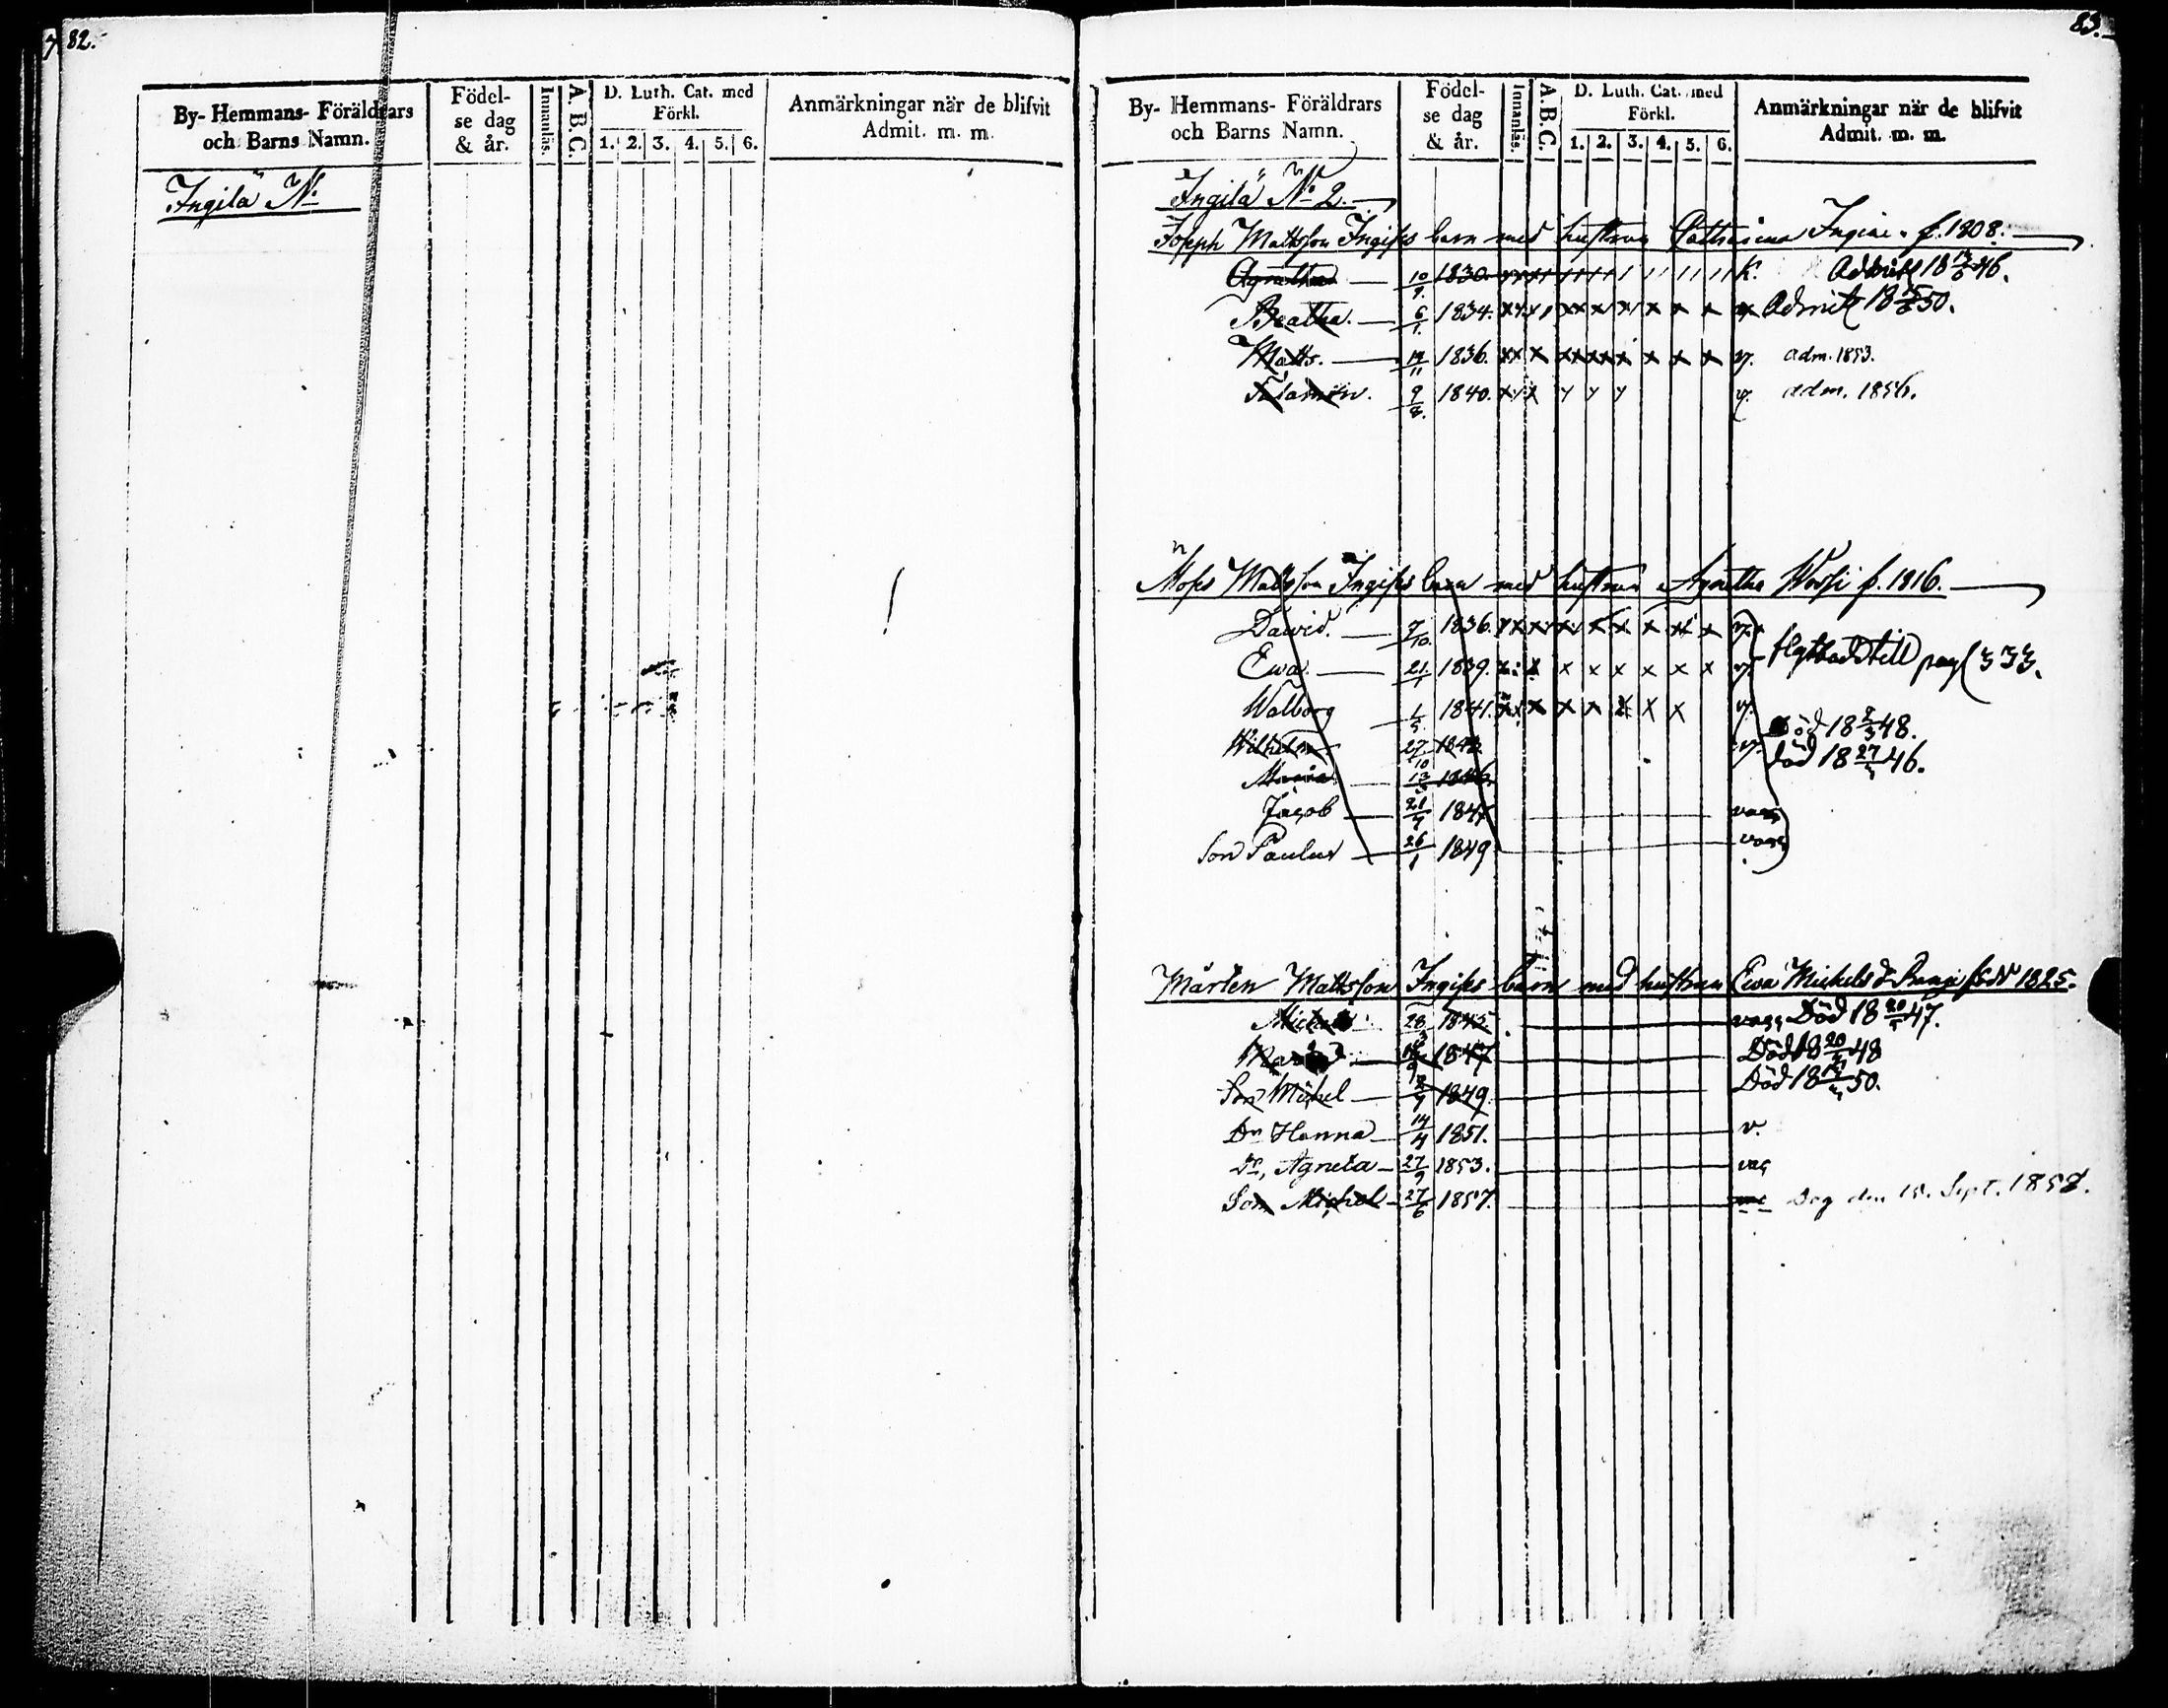 82.
By- Hemmans- Föräldrars och Barns Namn.
Födelse dag & år.
Innanläs.
A. B. C.
D. Luth. Cat. med Förkl.
1. 2. 3. 4. 5. 6.
Anmärkningar när de blifvit Admit. m. m.
Ingilä No
83.
By- Hemmans- Föräldrars och Barns Namn.
Födelse dag & år.
Innanläs.
A. B. C.
D. Luth. Cat. med Förkl.
1. 2. 3. 4. 5. 6.
Anmärkningar när de blifvit Admit. m. m.
Ingilä No 2.
Joseph Mattsson Ingiss barn med hustrun Catharina f. 1808.
Agnetha 10/9 1830. k. Admit 46.
Beatha. 6/1 1834. Admit 50.
Matts. 1836. v. adm. 1853.
9/8 1840. v. adm. 1856.
Mattsson Ingiss barn med hustrun Agnetha f. 1816.
David. 7/10 1836. v.
Ewa. 1839. v. flyttad till pag 333.
Walborg 1841. v.
Wilhelm 27/10 v. Död 18 48.
Maria 1846. död 18 27 46.
Jacob 1847 vacc
Son Paulus 26/1 1849 vacc
Mårten Mattsson Ingiss barn med hustrun Ewa Michelsdr 1825.
Michel 28 1845. vacc Död 18 20 47.
1847 Död 18 20 48
Son Michel 1849. Död 18 50.
Dr Hanna 14/4 1851. v.
Dr, Agneta 27/9 1853. vac
Son Michel 27/6 1857. Dog den 15. Sept. 1858.